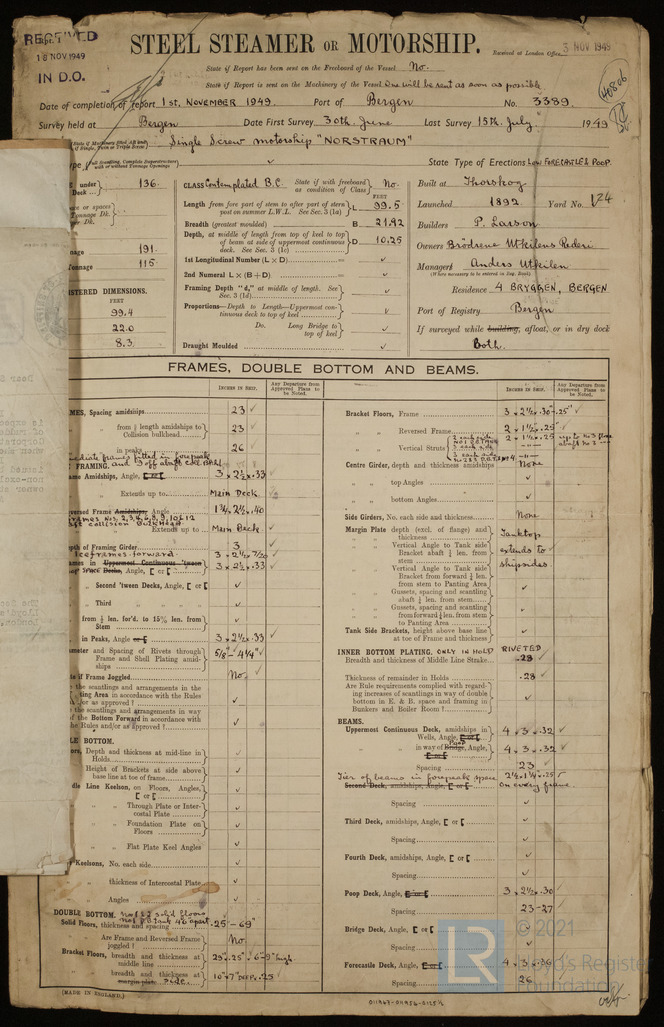 RECEIVED
18 NOV 1949
IN D.O.
STEEL STEAMER OR MOTORSHIP.
Received at London Office 3 NOV 1949
State if Report has been sent on the Freeboard of the Vessel No.
State if Report is sent on the Machinery of the Vessel One will be sent as soon as possible
Date of completion of report 1st. NOVEMBER 1949. Port of Bergen No. 3389
Survey held at Bergen Date First Survey 30th. June Last Survey 15th. July. 1949
Single Screw motorship "NORSTRAUM"
State Type of Erections LOW FORECASTLE & POOP.
under Deck 136.
191.
115
REGISTERED DIMENSIONS.
FEET
99.4
22.0
8.3
CLASS Contemplated B.C. State if with freeboard as condition of Class No.
FEET
Length from fore part of stem to after part of stern post on summer L.W.L. See Sec. 3 (1a) L 99.5
Breadth (greatest moulded) B 21.92
Depth, at middle of length from top of keel to top of beam at side of uppermost continuous deck. See Sec. 3 (1c) D 10.25
1st Longitudinal Number (L × D) = ✓
2nd Numeral L × (B + D) = ✓
Framing Depth "d," at middle of length. See Sec. 3 (1d) ✓
Proportions—Depth to Length—Uppermost continuous deck to top of keel ✓
Do. Long Bridge to top of keel ✓
Draught Moulded ✓
Built at Thorskog
Launched 1892. Yard No. 124
Builders P. Larson
Owners Brödrene Utkilens Rederi
Managers Anders Utkilen
(Where necessary to be entered in Reg. Book)
Residence 4 BRYGGEN, BERGEN
Port of Registry Bergen
If surveyed while building, afloat, or in dry dock
Both.
FRAMES, DOUBLE BOTTOM AND BEAMS.
INCHES IN SHIP.
Any Departure from Approved Plans to be Noted.
INCHES IN SHIP.
Any Departure from Approved Plans to be Noted.
FRAMES, Spacing amidships 23 ✓
" " from ⅕ length amidships to Collision bulkhead 23 ✓
" " in peaks 26 ✓
FRAMING.
Frame Amidships, Angle 3 × 2½ × .33 ✓
" " Extends up to Main Deck
Reversed Frame Amidships, Angle 1¾ × 2½ × .40
" " Extends up to Main Deck ✓
Depth of Framing Girder 3 ✓
3 × 2½ × 7/20 ✓
Uppermost Contin'ous 'tween Decks, Angle, [ or [ 3 × 2½ × .33 ✓
" Second 'tween Decks, Angle, [ or [ ✓
" Third " " ✓
" from ⅕ len. for'd. to 15% len. from Stem ✓
" in Peaks, Angle or [ 3 × 2½ × .33 ✓
Diameter and Spacing of Rivets through Frame and Shell Plating amidships 5/8 – 4¼" ✓
State if Frame Joggled No. ✓
the scantlings and arrangements in the Panting Area in accordance with the Rules and/or as approved? ✓
the scantlings and arrangements in way of the Bottom Forward in accordance with the Rules and/or as approved? ✓
DOUBLE BOTTOM.
Floors, Depth and thickness at mid-line in Holds ✓
Height of Brackets at side above base line at toe of frame ✓
Middle Line Keelson, on Floors, Angles, [ or [ ✓
" " Through Plate or Intercostal Plate ✓
" " Foundation Plate on Floors ✓
" " Flat Plate Keel Angles ✓
Keelsons, No. each side ✓
" thickness of Intercostal Plate ✓
" Angles ✓
DOUBLE BOTTOM.
Solid Floors, thickness and spacing .25 – 69"
Are Frame and Reversed Frame joggled? No
Bracket Floors, breadth and thickness at middle line 29" × .25" × 6-9" high
" breadth and thickness at margin plate. Side. 10" × 7" DEEP × .25 ✓
Bracket Floors, Frame 3 × 2½ × .30 ".25" ✓
" " Reversed Frame 2 × 1½ × .25 ✓
" " Vertical Struts 2 × 1½ × .25
Centre Girder, depth and thickness amidships None
" " top Angles ✓
" " bottom Angles ✓
Side Girders, No. each side and thickness None
Margin Plate depth (excl. of flange) and thickness Tanktop
" " Vertical Angle to Tank side Bracket abaft ¼ len. from stem extends to
" " Vertical Angle to Tank side Bracket from forward ¼ len. from stem to Panting Area shipsides.
" " Gussets, spacing and scantling abaft ¼ len. from stem ✓
" " Gussets, spacing and scantling from forward ¼ len. from stem to Panting Area ✓
Tank Side Brackets, height above base line at toe of Frame and thickness ✓
INNER BOTTOM PLATING. ONLY IN HOLD RIVETED
Breadth and thickness of Middle Line Strake .28 ✓
Thickness of remainder in Holds .28 ✓
Are Rule requirements complied with regarding increases of scantlings in way of double bottom in E. & B. space and framing in Bunkers and Boiler Room? ✓
BEAMS.
Uppermost Continuous Deck, amidships in Wells, Angle, [ or [ 4 × 3 × .32 ✓
" " in way of Bridge, Poop Angle, [ or [ 4 × 3 × .32 ✓
Spacing 23 ✓
Tier of beams in forepeak space 2½ × 1¾ × .25 ✓
Second Deck, amidships, Angle, [ or [ On every frame
Spacing ✓
Third Deck, amidships, Angle, [ or [ ✓
Spacing ✓
Fourth Deck, amidships, Angle, [ or [ ✓
Spacing ✓
Poop Deck, Angle, [ or [ 3 × 2½ × .30 ✓
Spacing 23-27 ✓
Bridge Deck, Angle, [ or [ ✓
Spacing ✓
Forecastle Deck, Angle, [ or [ 4 × 3 × .36
Spacing 26
(MADE IN ENGLAND.)
011967-011956-0125½
LR
© 2021
Lloyd's Register
Foundation